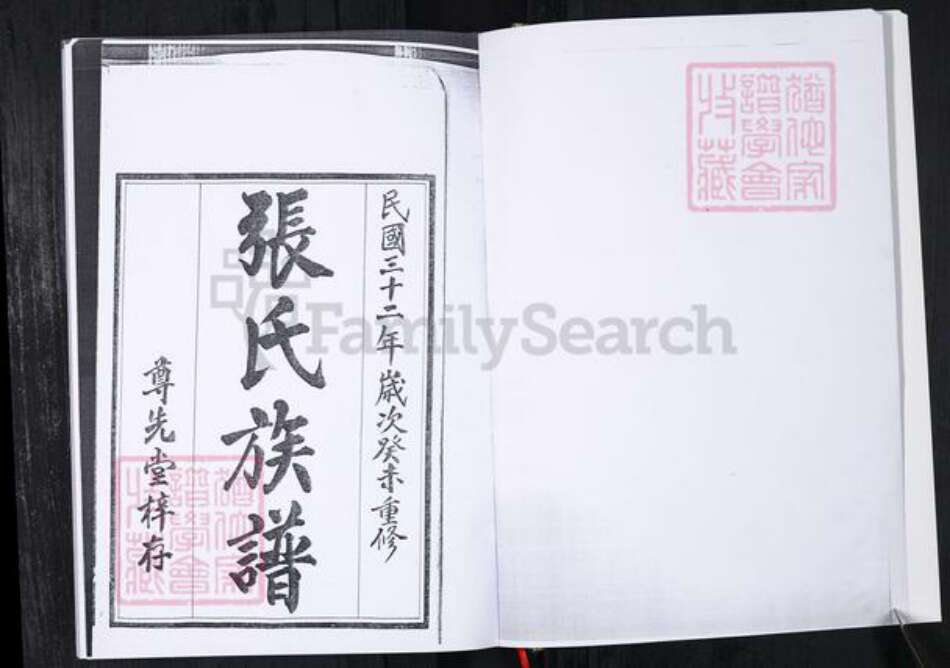 民國三十二年歲次癸未重修
張氏族譜
尊先堂梓存
猶他家
譜學會
收藏
猶他家
譜學會
收藏
FamilySearch